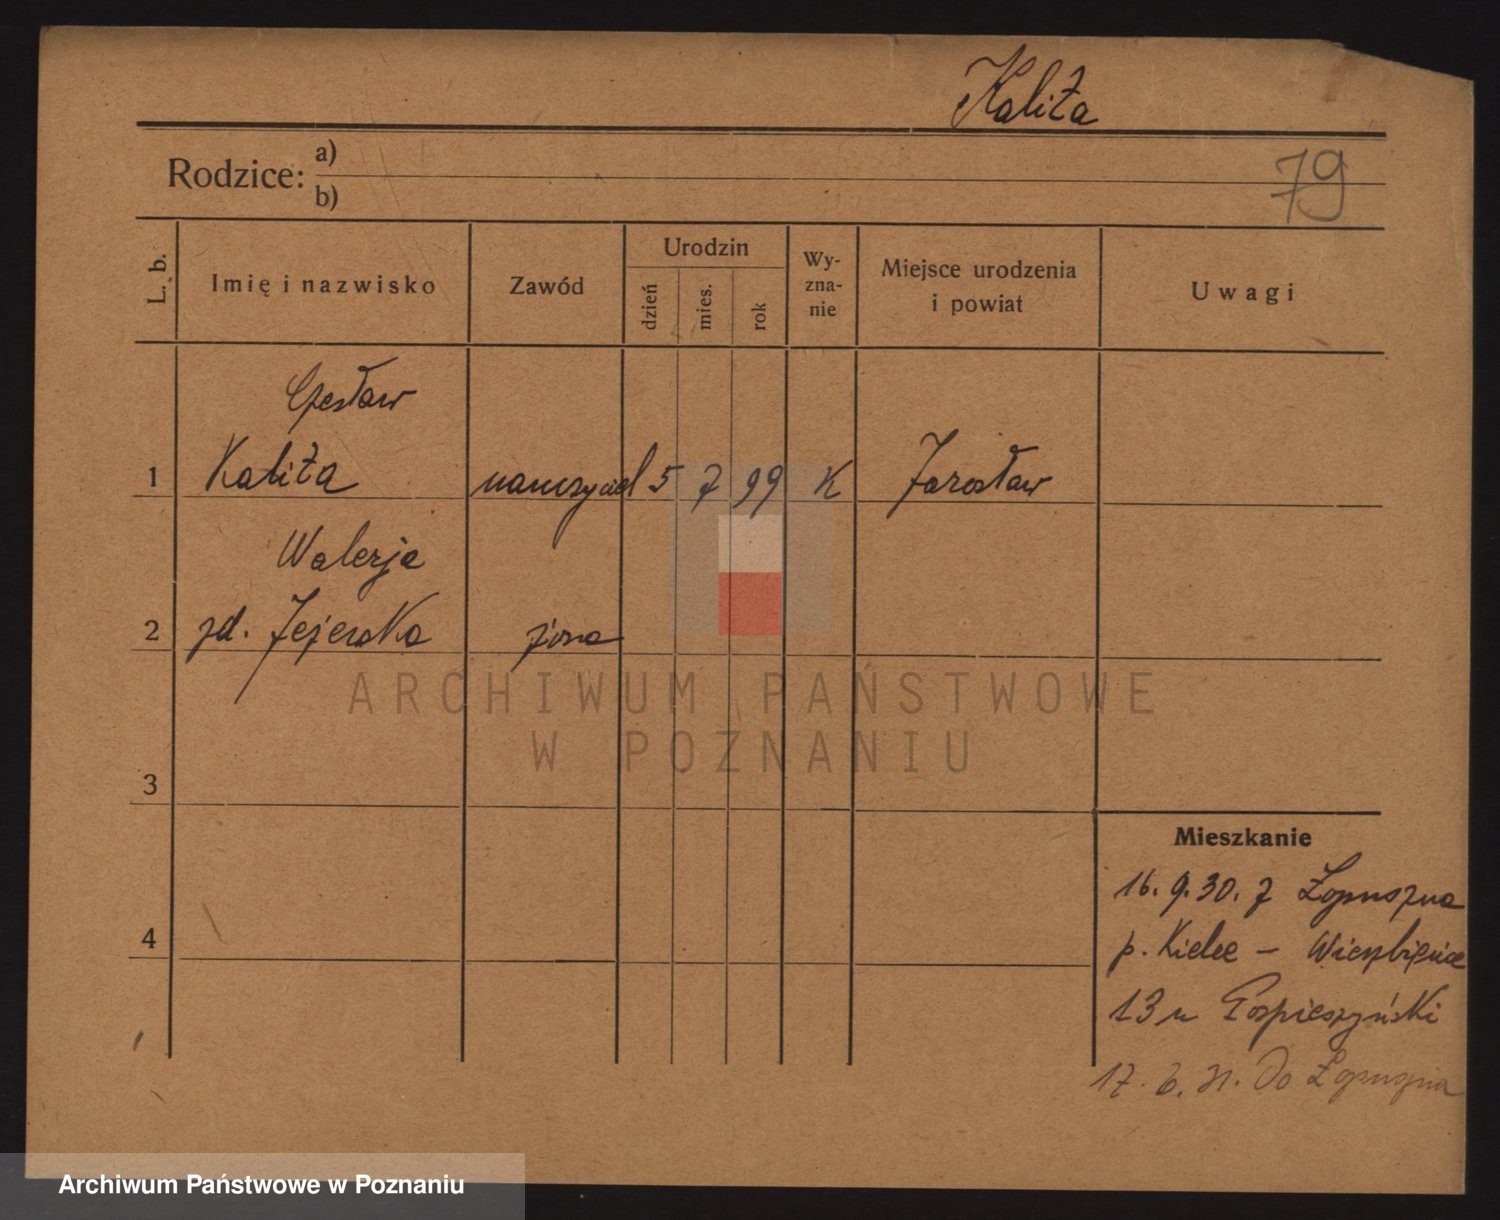 Kalita
Rodzice:
a)
b)
79
L. b.
Imię i nazwisko
Zawód
Urodzin
dzień
mies.
rok
Wy-
zna-
nie
Miejsce urodzenia
i powiat
Uwagi
Czesław
1 Kalita nauczyciel 5 7 99 K Jarosław
Walerja
2 zd. żona
3
4
Mieszkanie
16. 9. 30. z Łopuszna
p. Kielce – Wierzbięcice
13 u Pospieszyński
17. 6. 31. Do Łopuszna
ARCHIWUM PAŃSTWOWE
W POZNANIU
Archiwum Państwowe w Poznaniu